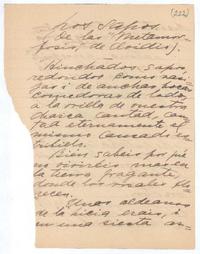 (222)
Los Sapos
(De las "Metamor-
fosis," de Ovidio).
Hinchados sapos,
redondos como
i de anchas bocas
comedoras de lodo,
a la orilla de vuestra
charca cantad, can-
tad eternamente el
mismo cansado

Bien sabéis por qué
no vivisteis
la tierra fragante,
donde los rosales flo-
recen.
Unos aldeanos
de la Licia erais, i
en una siesta